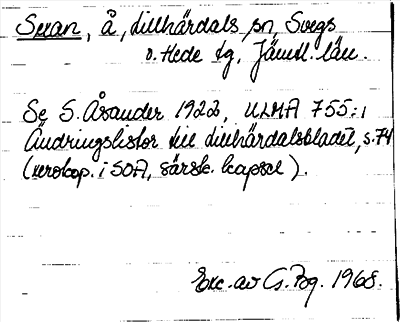 Svean, å, Lillhärdals sn, Svegs
o. Hede tg, Jämtl. län.
Se S. Åsander 1922, ULMA 755:1
Ändringslistor till Lillhärdalsbladet, s. 74
(xerokop. i SOA, särsk. kapsel).
Exc. av G. Bg. 1968.